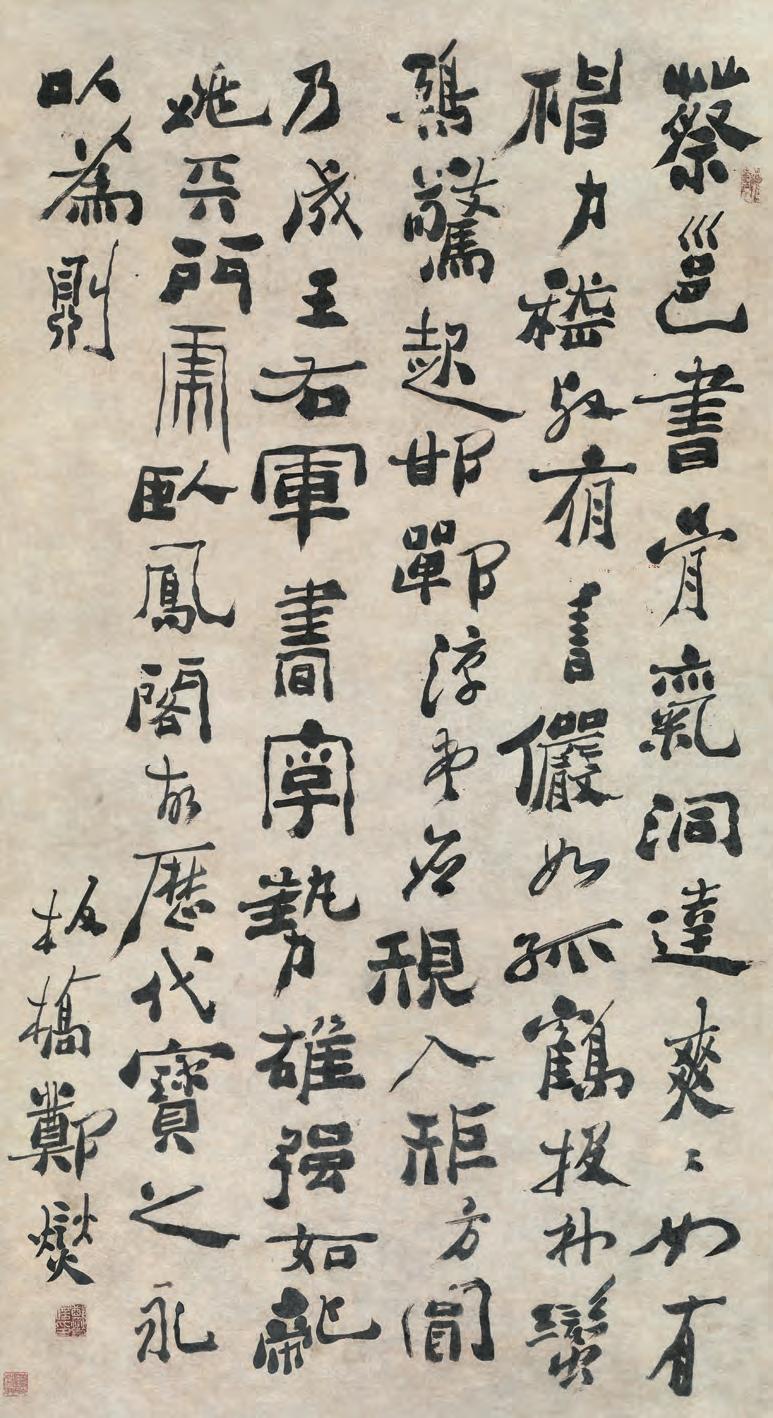 蔡邕書骨氣洞達爽〻如有
神力嵇叔夜書儼如孤鶴投林
鴉驚起邯鄲淳書應規入矩方圓
乃成王右軍書字勢雄强如龍
跳天門虎臥鳳閣故歷代寶之永
以為則
板橋鄭燮